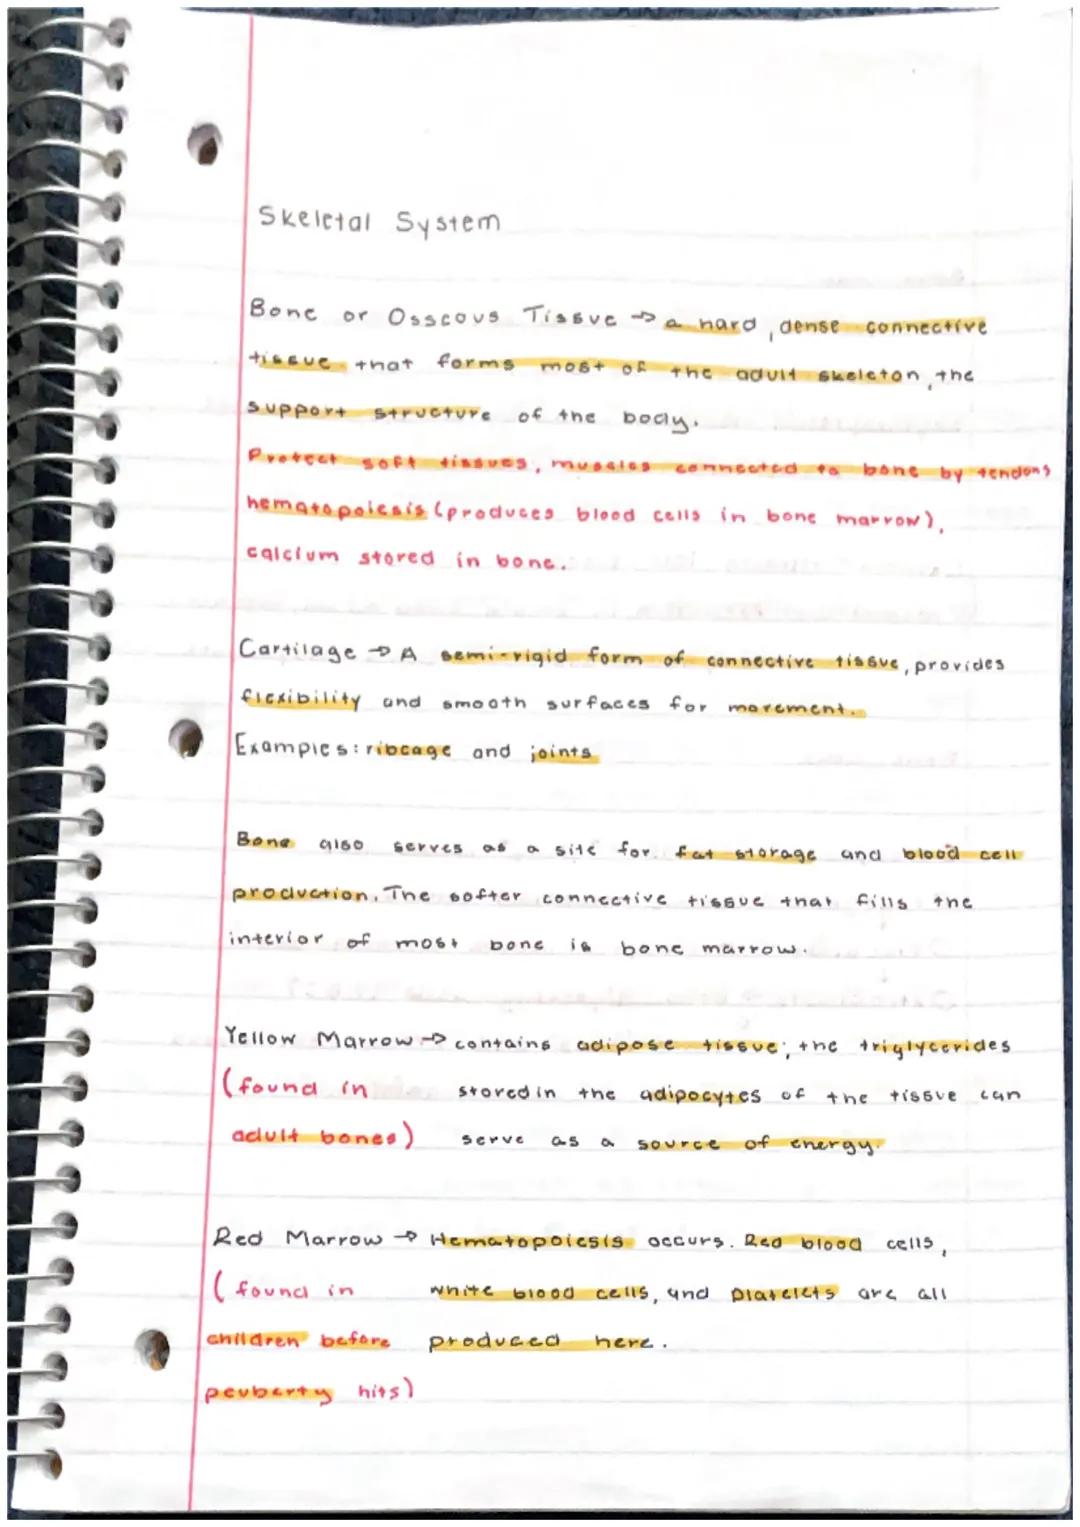 Skeletal System
Bone or Osseous Tissue → a hard, dense connective
tissue that forms most of the adult skeleton, the
support structure of the body.
Protect soft tissues, muscles connected to bone by tendons
hematopoiesis (produces blood cells in bone marrow),
calcium stored in bone.
Cartilage → A semi-rigid form of connective tissue, provides
flexibility and smooth surfaces for movement.
Examples: ribcage and joints
Bone also serves as a site for fat storage and blood cell
production. The softer connective tissue that fills the
interior of most bone is bone marrow.
Yellow Marrow → contains adipose tissue; the triglycerides
(found in stored in the adipocytes of the tissue can
adult bones) serve as a source of energy.
Red Marrow → Hematopoiesis occurs. Red blood cells,
(found in white blood cells, and platelets are all
children before produced here.
peuberty hits)